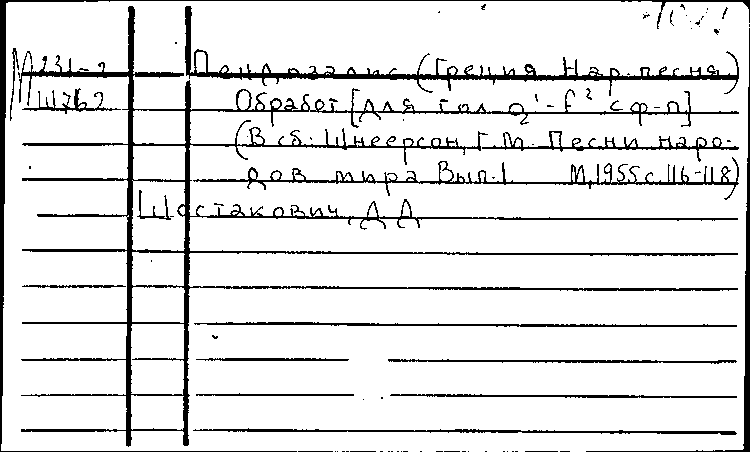 М 231-2 Пендозалис (Греция Нар. песня)
Ш762 Обработ [для гол. a'-f² с ф-п]
(В сб: Шнеерсон, Г.М. Песни наро-
дов мира Вып.1 М,1955 с.116-118)
Шостакович, Д.Д